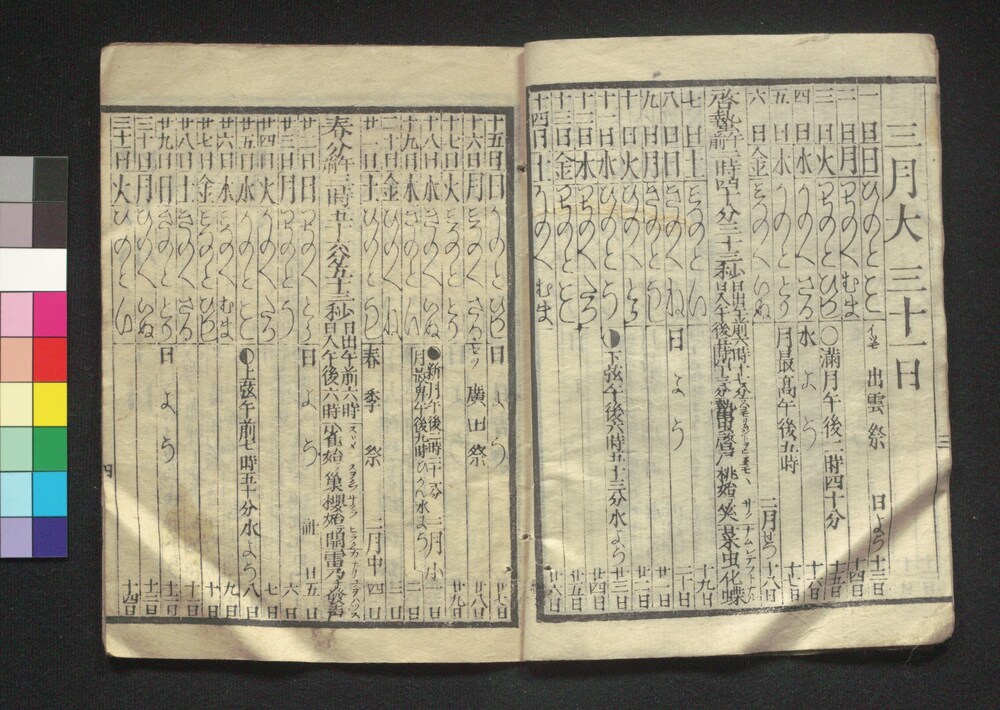 三月大三十一日
一日日ひのとみ イヅモ 出雲祭 日よう 十三日
二日月つちのえむま 十四日
三日火つちのとひつし ○満月午後二時四十分 十五日
四日水かのえさる 水よう 十六日
五日木かのととり 月最高午後九時 十七日
六日金みつのえいぬ 二月せつ 十八日
啓蟄午前一時四十分三十三秒 日出午前六時十七分 日入午後五時四十三分 蟄虫啓戸 桃始笑 菜虫化蝶
七日土みつのとい 十九日
八日日きのえね 日よう 二十日
九日月きのとうし 廿一日
十日火ひのえとら 廿二日
十一日水ひのとう ◐下弦午後六時五十三分水よう 廿三日
十二日木つちのえたつ 廿四日
十三日金つちのとみ 廿五日
十四日土かのえむま 廿六日
三
十五日日かのとひつし 日よう 廿七日
十六日月みつのえさる 廣田祭 廿八日
十七日火みつのととり 廿九日
十八日水きのえいぬ ●新月 水よう 二月小 一日
十九日木きのとい 月最卑午後九時 二日
二十日金ひのえね 三日
廿一日土ひのとうし 春季祭 二月中 四日
春分午前二時五十六分五十三秒 日出午前六時 日入午後六時 雀始巣 櫻始開 雷乃發声
廿二日日つちのえとら 日よう 社 五日
廿三日月つちのとう 六日
廿四日火かのえたつ 七日
廿五日水かのとみ ◑上弦午前七時五十分水よう 八日
廿六日木みつのえむま 九日
廿七日金みつのとひつし 十日
廿八日土きのえさる 十一日
廿九日日きのととり 日よう 十二日
三十日月ひのえいぬ 十三日
三十一日火ひのとい 十四日
四